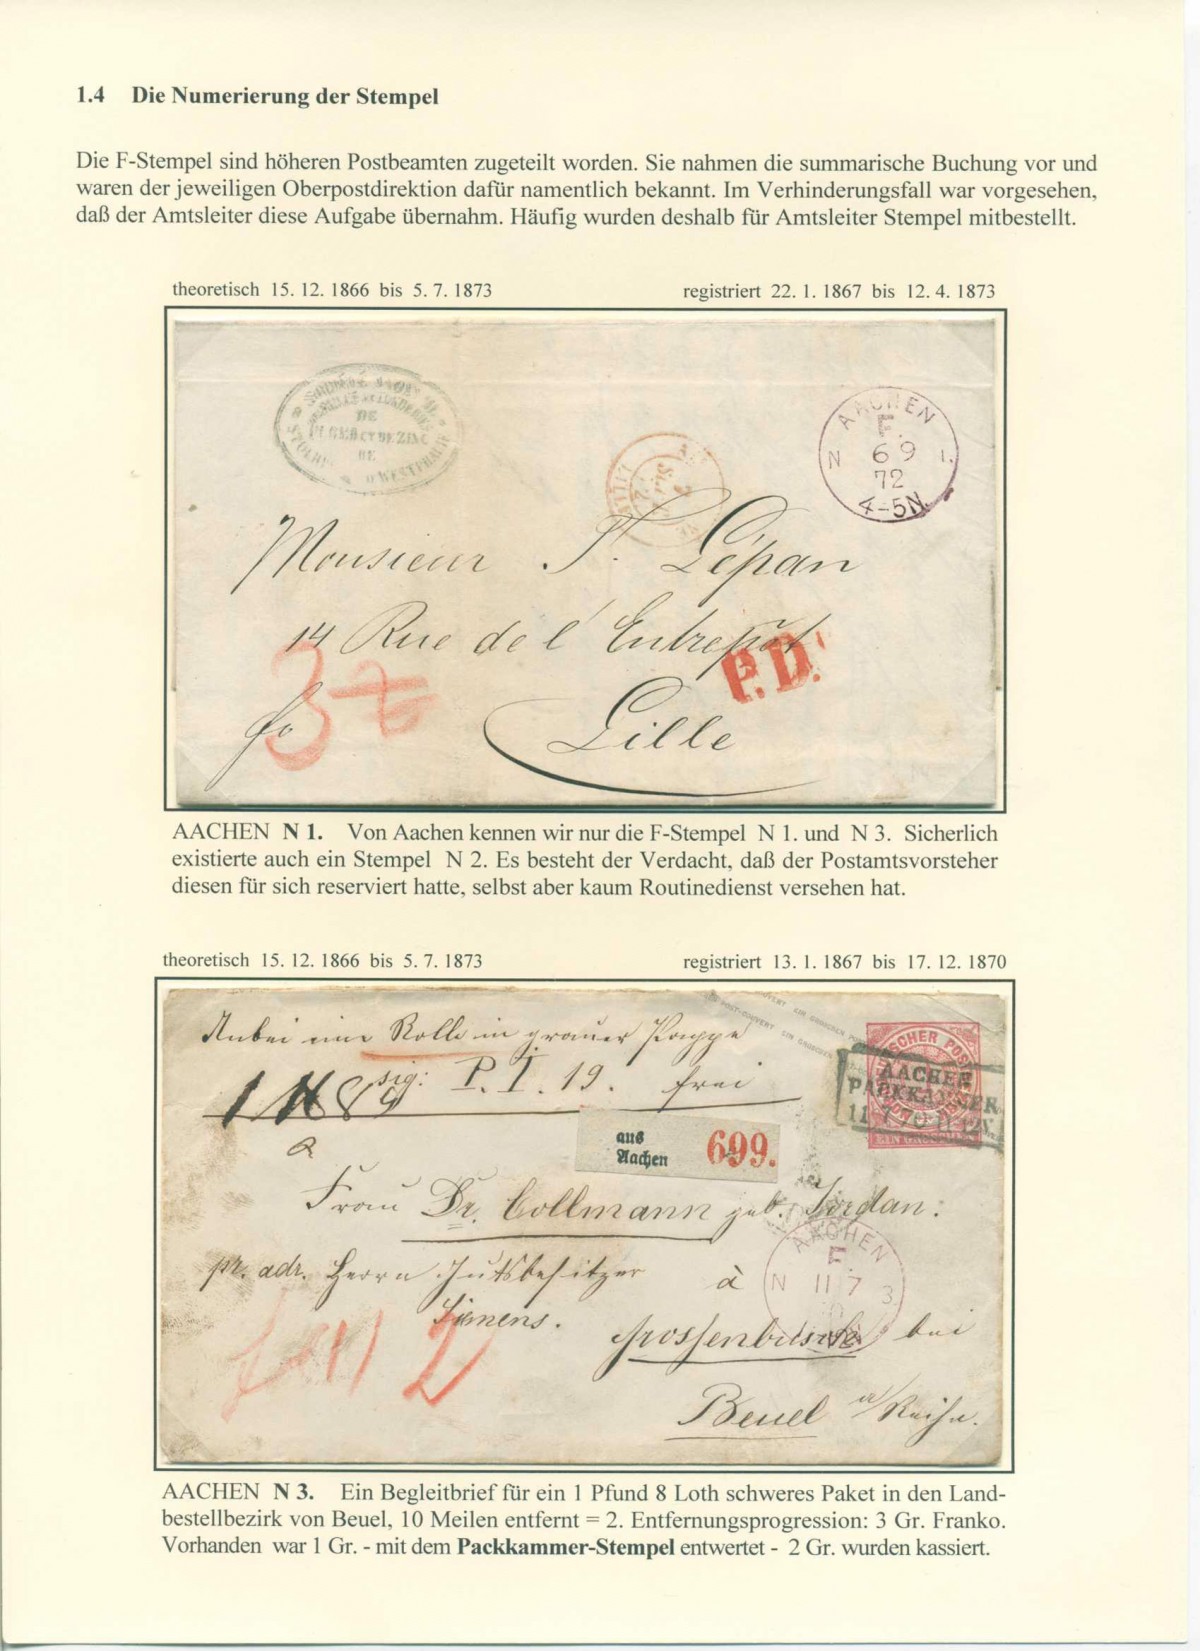 1.4 Die Numerierung der Stempel
Die F-Stempel sind höheren Postbeamten zugeteilt worden. Sie nahmen die summarische Buchung vor und
waren der jeweiligen Oberpostdirektion dafür namentlich bekannt. Im Verhinderungsfall war vorgesehen,
daß der Amtsleiter diese Aufgabe übernahm. Häufig wurden deshalb für Amtsleiter Stempel mitbestellt.
theoretisch 15. 12. 1866 bis 5. 7. 1873 registriert 22. 1. 1867 bis 12. 4. 1873
DE
DE
WESTPHALIE
AACHEN
F.
N 6 9 1.
72
4-5N.
LILLE
Monsieur T. Lépan
14 Rue de l'Entrepôt
P.D.
fo 3
Lille
AACHEN N 1. Von Aachen kennen wir nur die F-Stempel N 1. und N 3. Sicherlich
existierte auch ein Stempel N 2. Es besteht der Verdacht, daß der Postamtsvorsteher
diesen für sich reserviert hatte, selbst aber kaum Routinedienst versehen hat.
theoretisch 15. 12. 1866 bis 5. 7. 1873 registriert 13. 1. 1867 bis 17. 12. 1870
Anbei eine Rolle in grauer Pappe
sig: P. I. 19. frei
AACHEN
PACKKAMMER
11 7 70
EIN GROSCHEN
aus
Aachen 699.
Frau Dr. Collmann geb. Jordan:
pr. adr. Herrn Gutsbesitzer à
Siemens.
AACHEN
F.
N 11 7 3.
Grossenbusch bei
2
Beuel a/Rhein.
AACHEN N 3. Ein Begleitbrief für ein 1 Pfund 8 Loth schweres Paket in den Land-
bestellbezirk von Beuel, 10 Meilen entfernt = 2. Entfernungsprogression: 3 Gr. Franko.
Vorhanden war 1 Gr. - mit dem Packkammer-Stempel entwertet - 2 Gr. wurden kassiert.